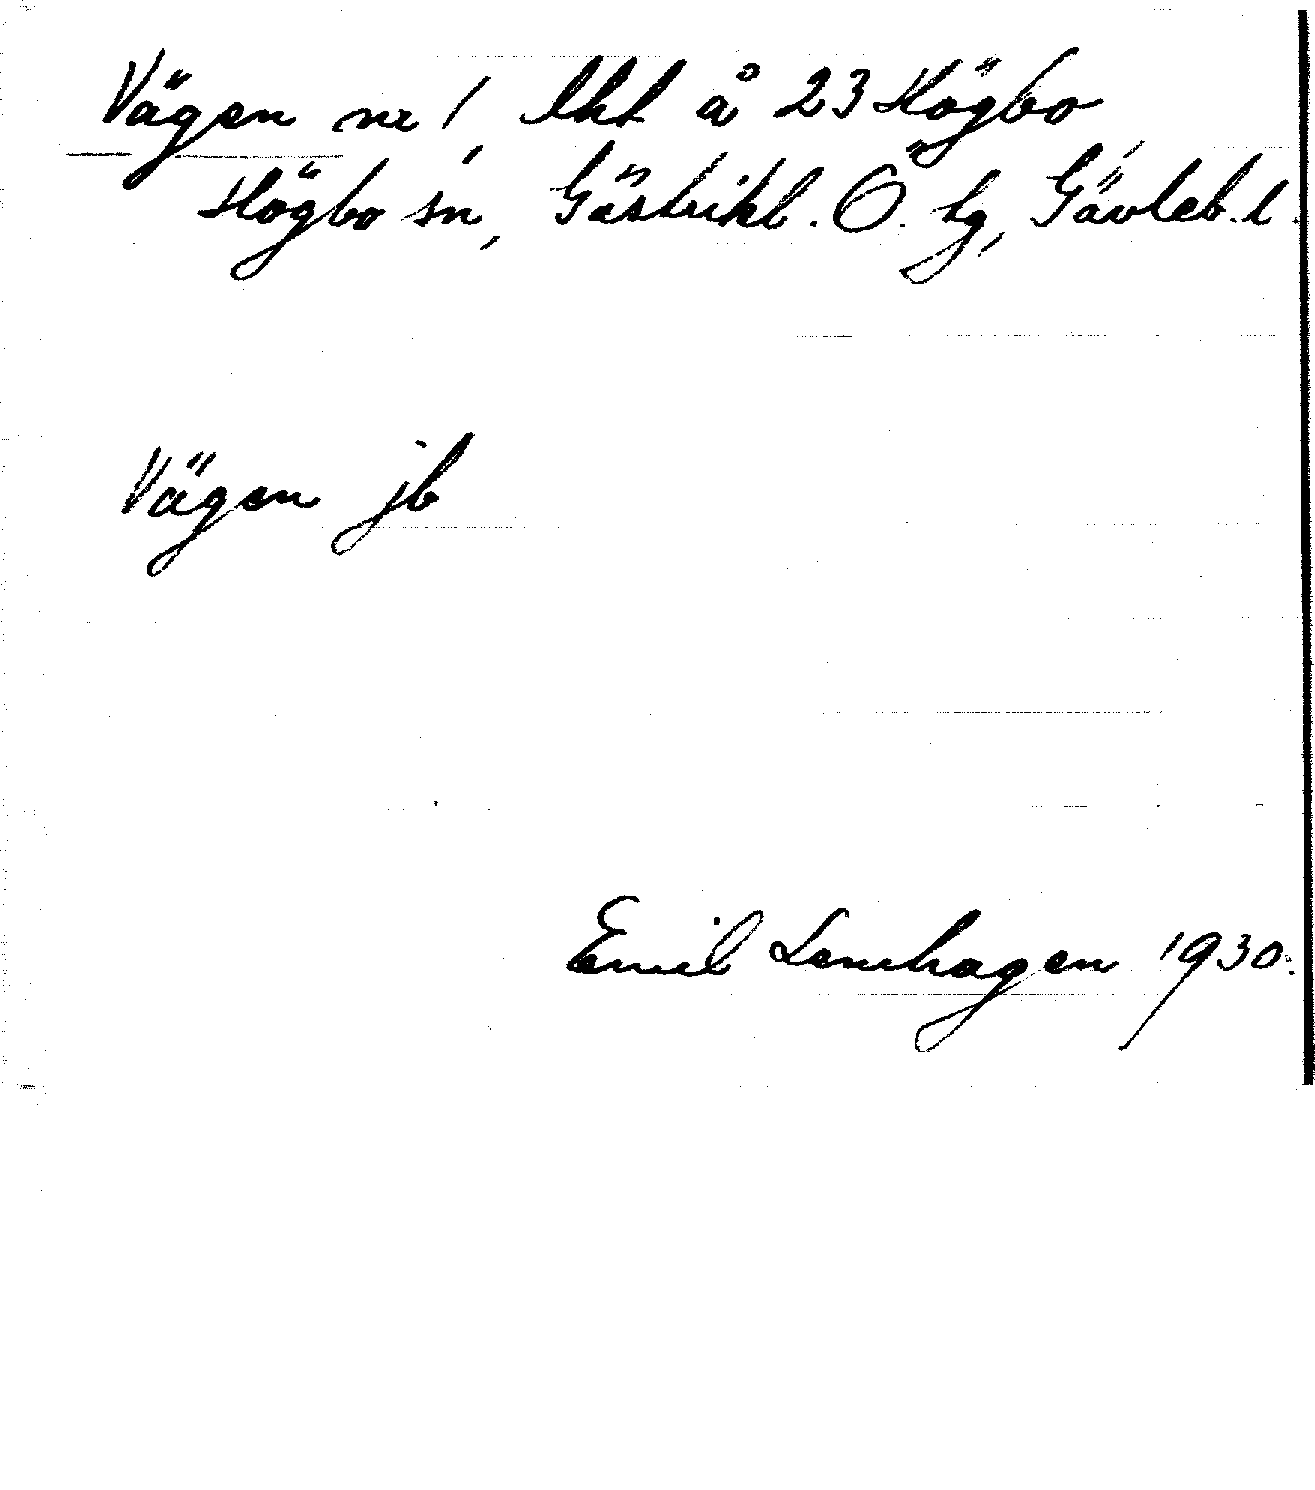 Vägen nr 1, lht å 23 Högbo,
Högbo sn, Gästrikl. Ö. hg, Gävleb. l.
Vägen jb
Emil Lenhagen 1930.